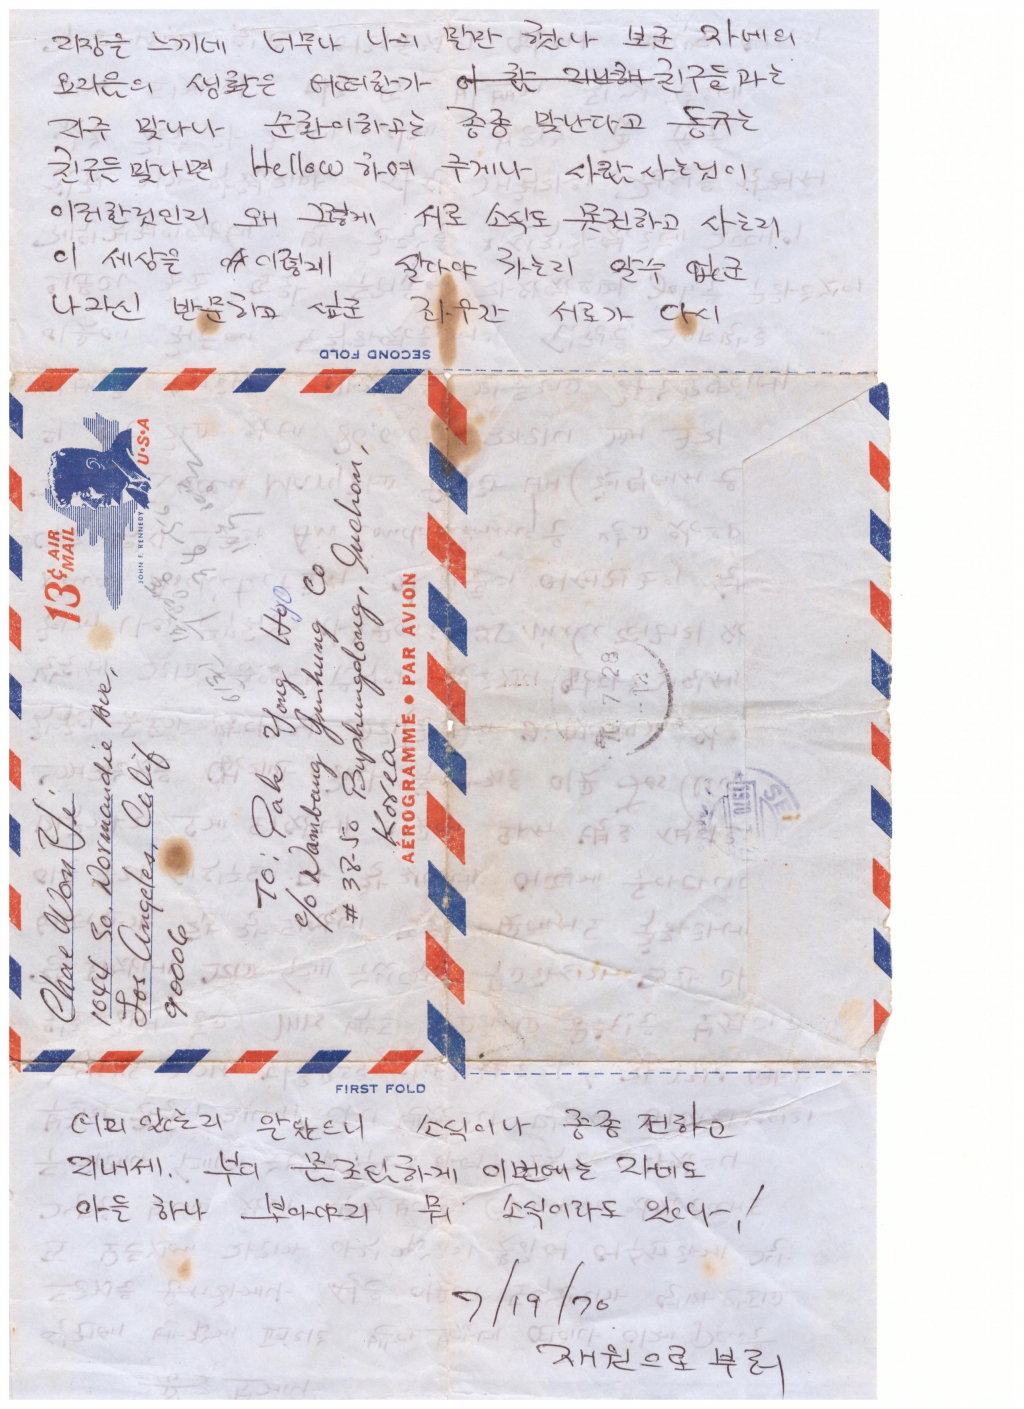 지장은 느끼네 너무나 나의 말만 했으나 보군 자네의
요즈음의 생활은 어떠한가 친구들과는
자주 맞나나 순환이하고는 종종 맞난다고 동규는
친구들 맞나면 Hellow 하여 주게나 사람 사는것이
이러한것인지 왜 그렇게 서로 소식도 못전하고 사는지
이 세상을 이렇게 살다야 가는지 알수 없군
나자신 반문하고 싶군 좌우간 서로가 다시
SECOND FOLD
13¢ AIR MAIL
JOHN F. KENNEDY
U·S·A
Chae Won Yi
1044 So. Normandie Ave,
Los Angeles, Calif
90006
To: Pak Yong Hyo
c/o Nambang Ginhung Co
# 38-50 Buphungdong, Inchon,
Korea
AEROGRAMME • PAR AVION
70. 7. 28
1970
FIRST FOLD
어디 있는지 알았으니 소식이나 종종 전하고
지내세. 부디 몸조심하게 이번에는 자네도
아들 하나 보아야지 뭐 소식이라도 있나~!
7/19/70
재원으로 부터